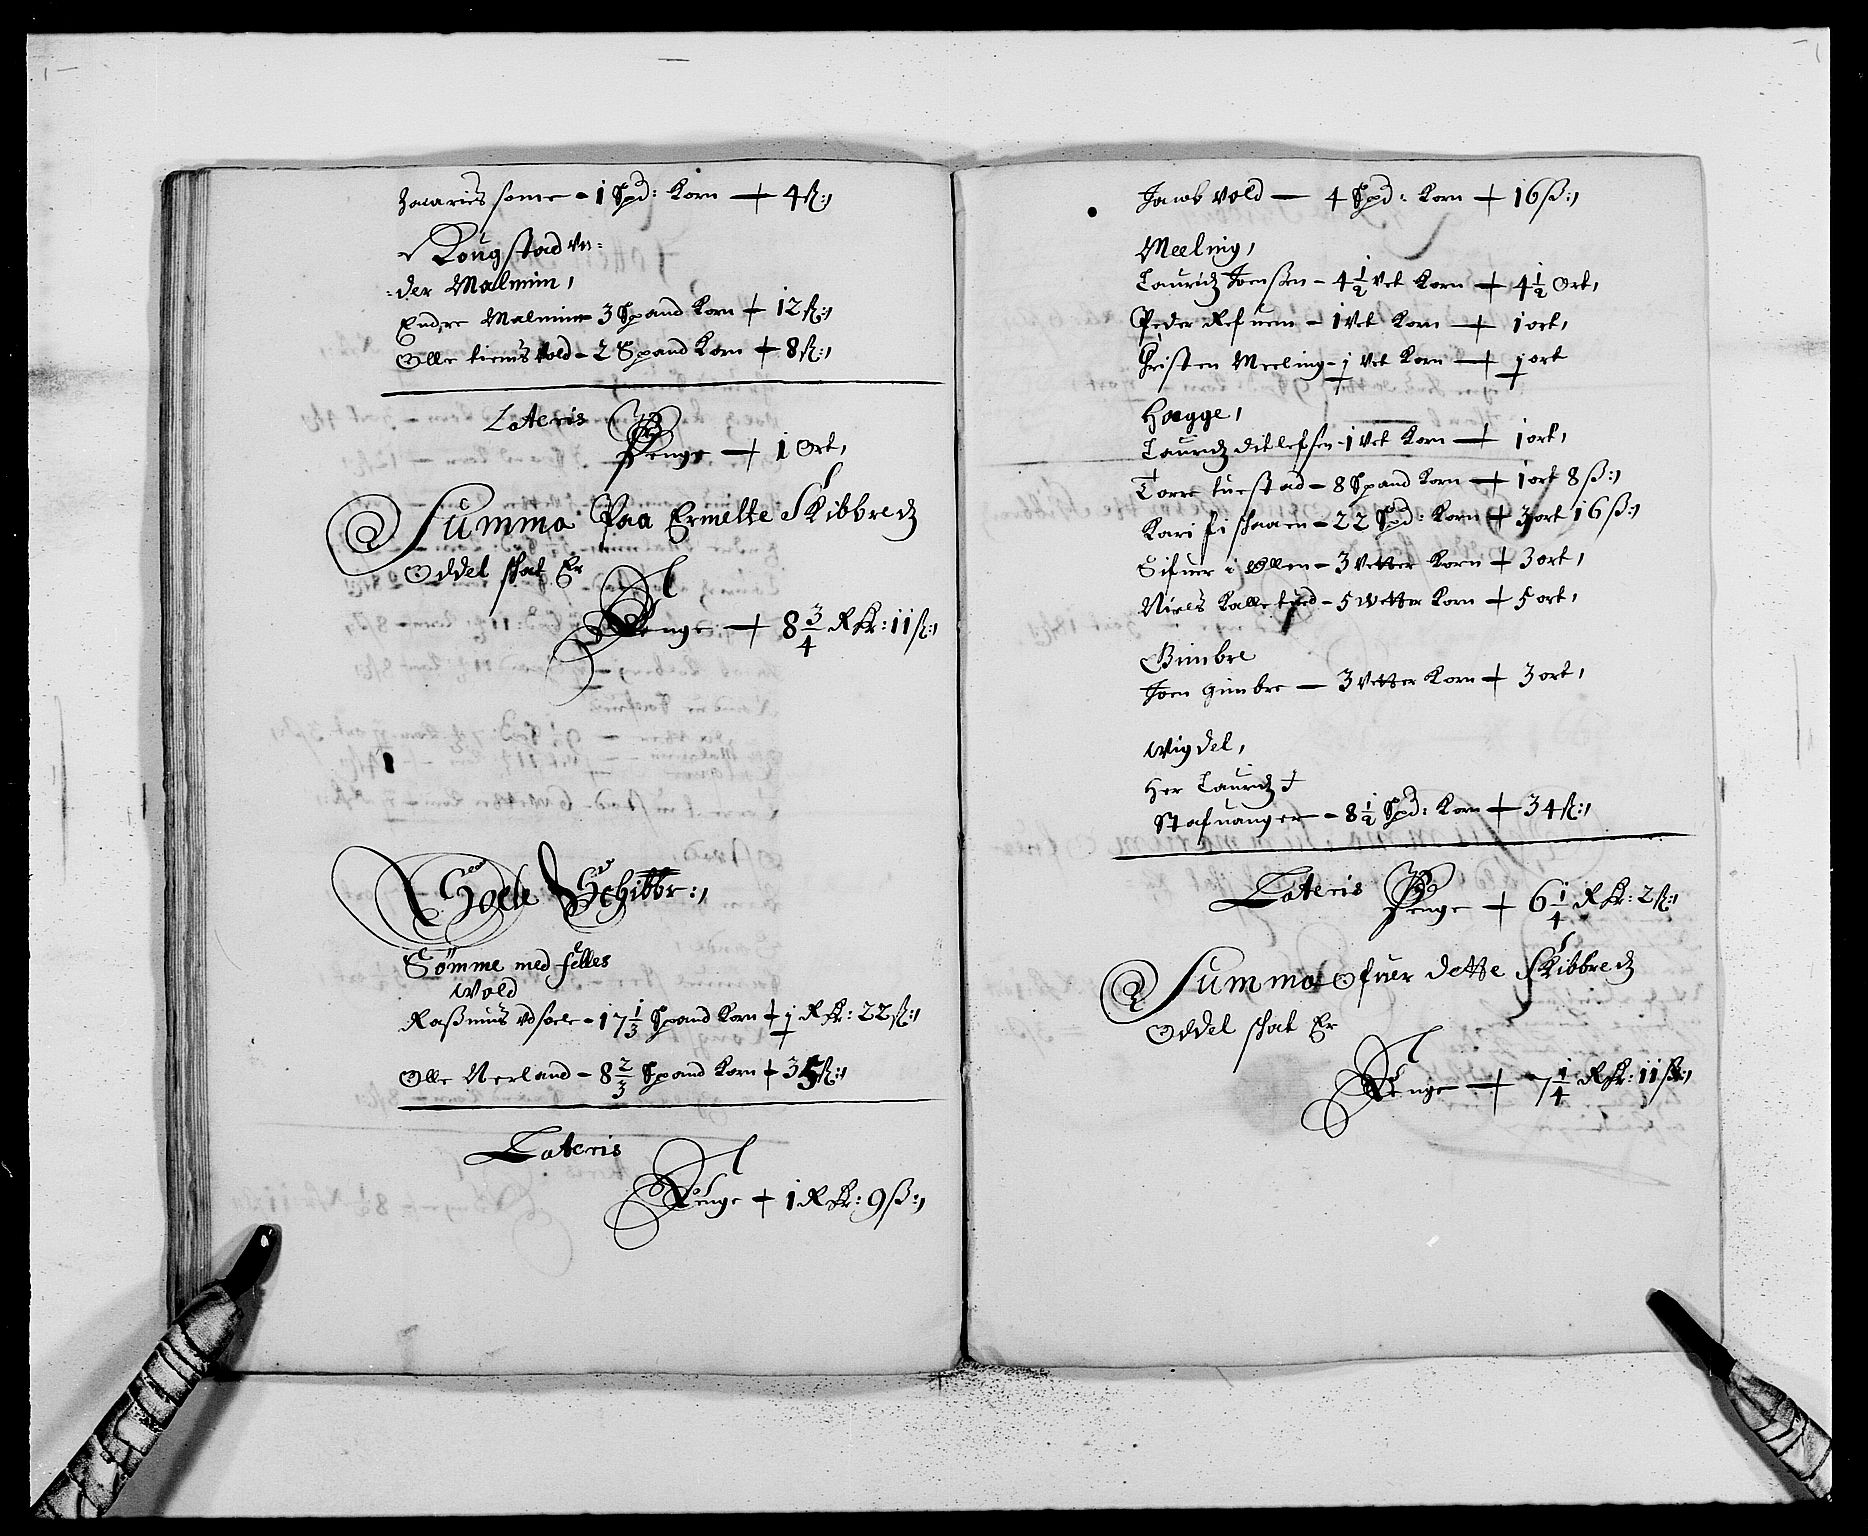 Zacaries some - 1 Spd: Korn + 4 ß:,
Kougstad vn:
:der Malmim,
Endre Malmim 3 Spand Korn + 12 ß:,
Olle tiems vold - 2 Spand Korn + 8 ß:,
Lateris
Penge + 1 Ort,
Summa Paa Ermelte Skibbredz
Oddel skat Er
Penge + 8 3/4 Rdr: 11 ß:,
Soele Schibbr:,
Sømme med felles
wold
Rasmus vdsoele - 17 1/3 Spand Korn + 1 Rdr: 22 ß:,
Olle Nerland - 8 2/3 Spand Korn + 35 ß:,
Lateris
Penge + 1 Rdr: 9 ß:,
Jacob vold - 4 Spd: Korn + 16 ß:,
Meeling,
Lauridz Joensen - 4 1/2 vet Korn + 4 1/2 Ort,
Peder Refuem - 1 vet Korn + 1 ort,
Christen Meeling - 1 vet Korn + 1 ort
Hogge,
Lauridz Ditlefsen - 1 vet Korn + 1 ort,
Torre tuestad - 8 Spand Korn + 1 ort 8 ß:,
Kari fi skaaen - 22 Spd: Korn + 3 ort 16 ß:,
Sifuer i Øllen - 3 vetter Korn + 3 ort,
Niels Kalletued - 5 wetter Korn + 5 ort,
Gimbre
Joen gimbre - 3 vetter Korn + 3 ort,
wigdel,
Her Lauridz i
Stafuanger - 8 1/2 Spd: Korn + 34 ß:,
Lateris Penge + 6 1/4 Rdr: 2 ß:,
Summa Ofuer dette Skibbredz
Oddel skat Er
Penge + 7 1/4 Rdr: 11 ß:,